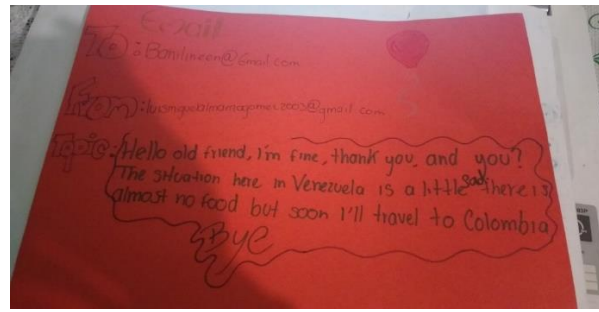 Email
To: Banilineon@Gmail.com
From: luismiguelalmarzagomez2003@gmail.com
Topic: Hello old friend, I'm fine, thank you, and you?
The situation here in Venezuela is a little sad, there is
almost no food but soon I'll travel to Colombia
Bye